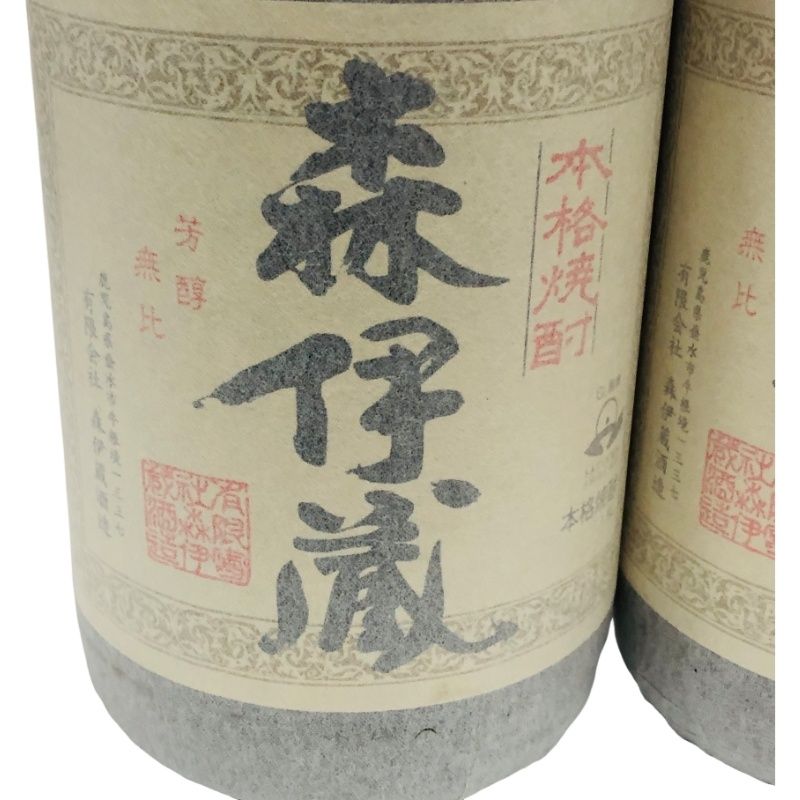 本格焼酎
森伊蔵
芳醇
無比
鹿児島県垂水市牛根境一三三七
有限会社 森伊蔵酒造
有限会
社森伊
蔵酒造
本格焼酎
無比
鹿児島県垂水市牛根境一三三七
有限会社 森伊蔵酒造
社森伊
蔵酒造